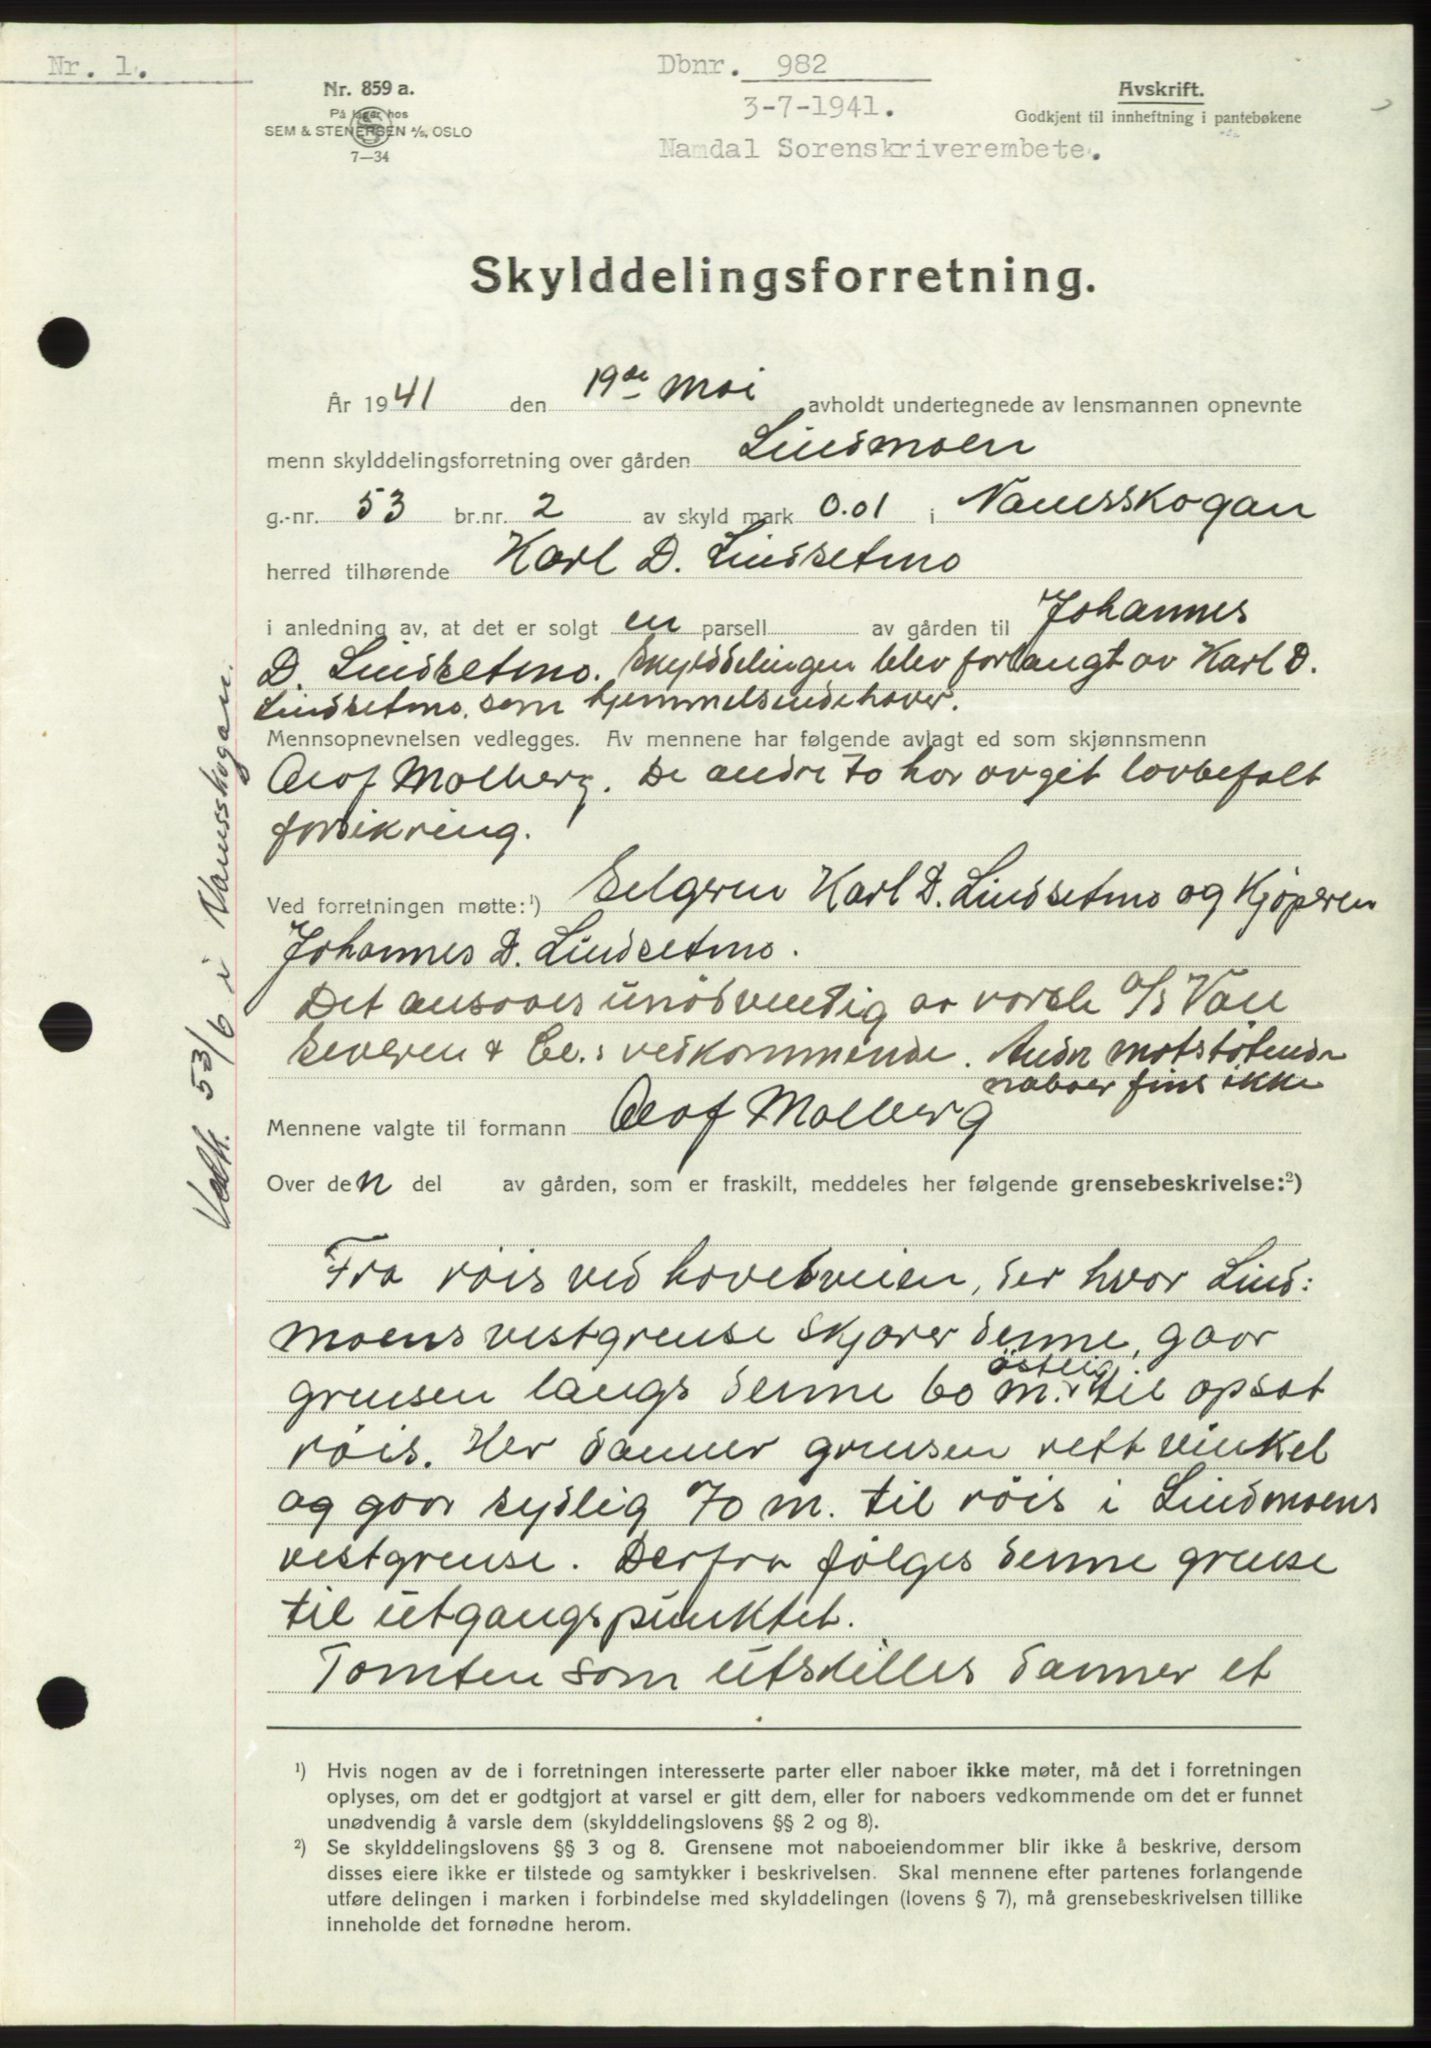 Nr. 1.
Dbnr. 982
Nr. 859 a.
På lager hos
SEM & STENERSEN A/S, OSLO
7—34
3-7-1941.
Avskrift.
Godkjent til innheftning i pantebøkene
Namdal Sorenskriverembete.
Skylddelingsforretning.
År 1941 den 19de mai avholdt undertegnede av lensmannen opnevnte
menn skylddelingsforretning over gården Lindmoen
g.-nr. 53 br.nr. 2 av skyld mark 0.01 i Namsskogan
herred tilhørende Karl D. Lindsetmo
i anledning av, at det er solgt en parsell av gården til Johannes
D. Lindsetmo. Skylddelingen blev forlangt av Karl D.
Lindsetmo. som hjemmelsindehaver.
Mennsopnevnelsen vedlegges. Av mennene har følgende avlagt ed som skjønnsmenn
Olof Molberg. De andre to har avgit lovbefalt
forsikring.
Ved forretningen møtte:¹) Selgeren Karl D. Lindsetmo og Kjøperen
Johannes D. Lindsetmo.
Det ansaaes unödvendig av varsle A/S Van
Severen & Co.s vedkommende. Andre motstötende
naboer fins ikke
Mennene valgte til formann Olof Molberg
Over den del av gården, som er fraskilt, meddeles her følgende grensebeskrivelse:²)
Fra röis ved hovedveien, der hvor Lind:
moens vestgrense skjærer denne, gaar
östlig
grensen langs denne 60 m. til opsat
röis. Her danner grensen rett vinkel
og gaar sydlig 70 m. til röis i Lindmoens
vestgrense. Derfra fölges denne grense
til utgangspunktet.
Tomten som utskilles danner et
Vedk. 53/6 i Namsskogan.
¹) Hvis nogen av de i forretningen interesserte parter eller naboer ikke møter, må det i forretningen
oplyses, om det er godtgjort at varsel er gitt dem, eller for naboers vedkommende om det er funnet
unødvendig å varsle dem (skylddelingslovens §§ 2 og 8).
²) Se skylddelingslovens §§ 3 og 8. Grensene mot naboeiendommer blir ikke å beskrive, dersom
disses eiere ikke er tilstede og samtykker i beskrivelsen. Skal mennene efter partenes forlangende
utføre delingen i marken i forbindelse med skylddelingen (lovens § 7), må grensebeskrivelsen tillike
inneholde det fornødne herom.